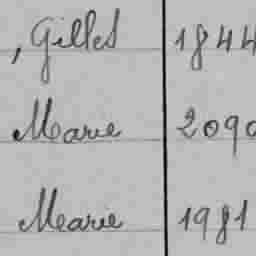 , Gilles 1844
Marie 2090
Marie 1981